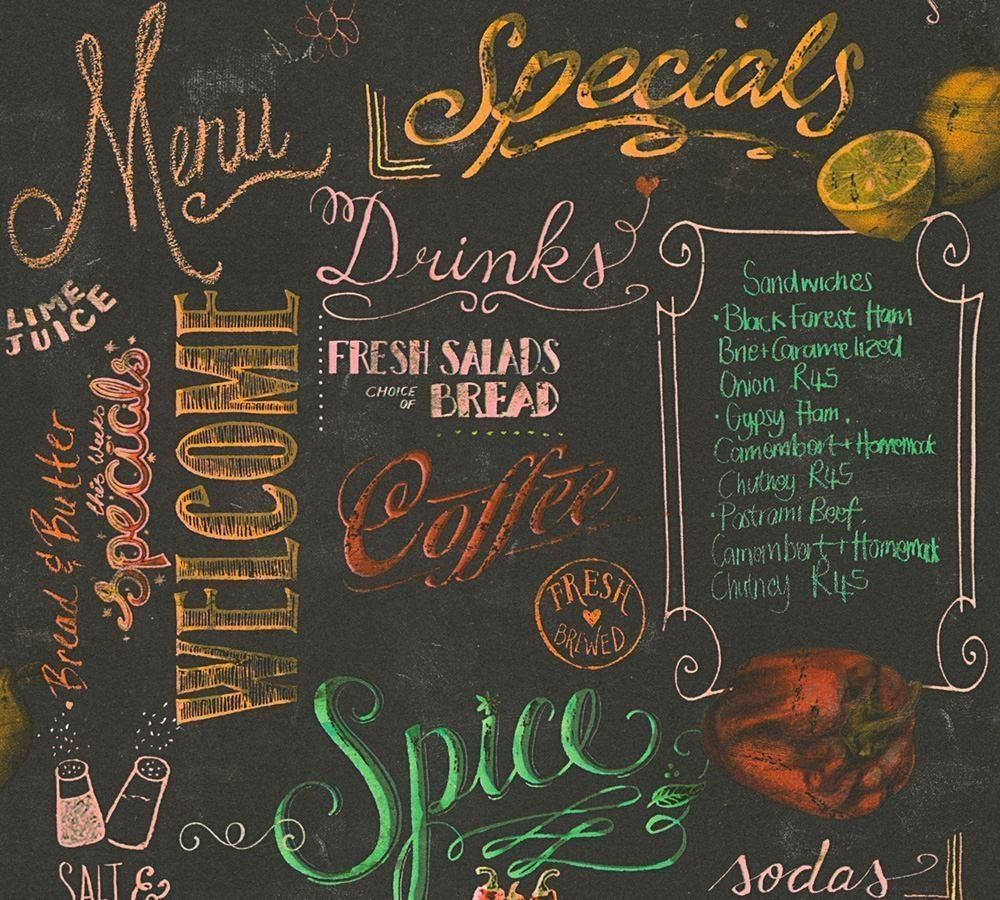 Menu
Specials
Drinks
LIME
JUICE
FRESH SALADS
CHOICE
OF
BREAD
WELCOME
this weeks
Specials
Bread & Butter
Coffee
FRESH
BREWED
Sandwiches
•Black Forest Ham
Brie+Caramelized
Onion R45
•Gypsy Ham.
Camombort+Homemade
Chutney R45
•Pastrami Beef.
Camombort+Homemade
Chutney R45
Spice
SALT &
sodas